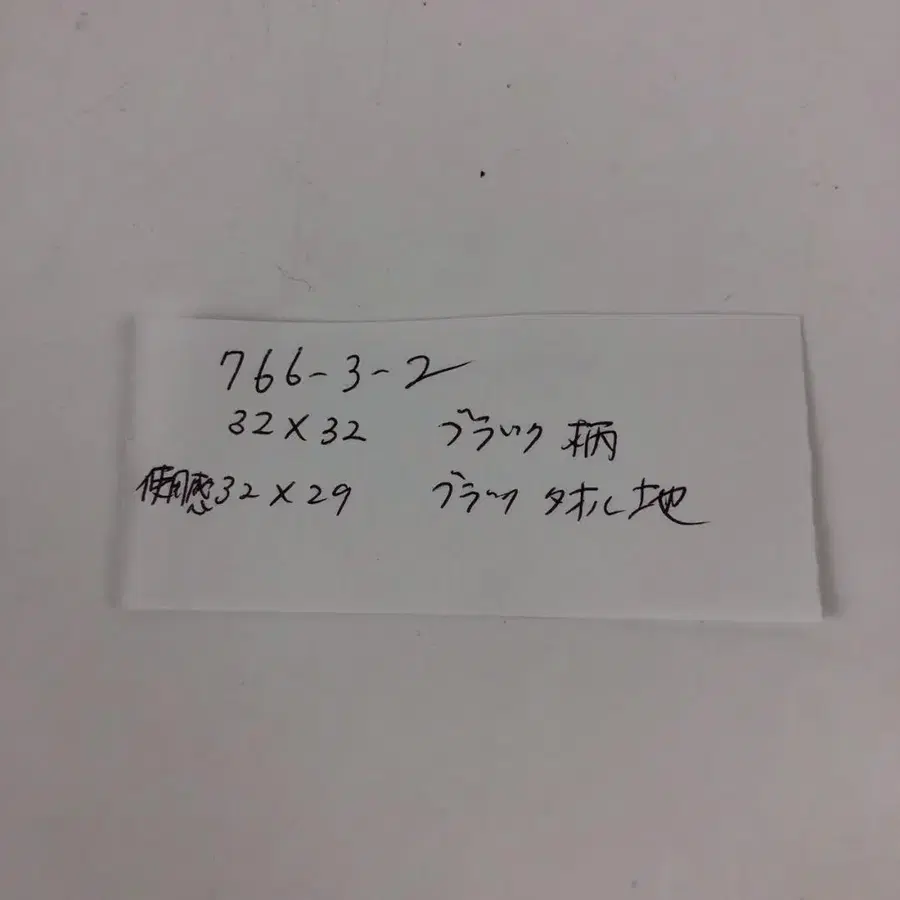 766-3-2
32×32 ブラック 柄
使用感32×29 ブラック タオル地